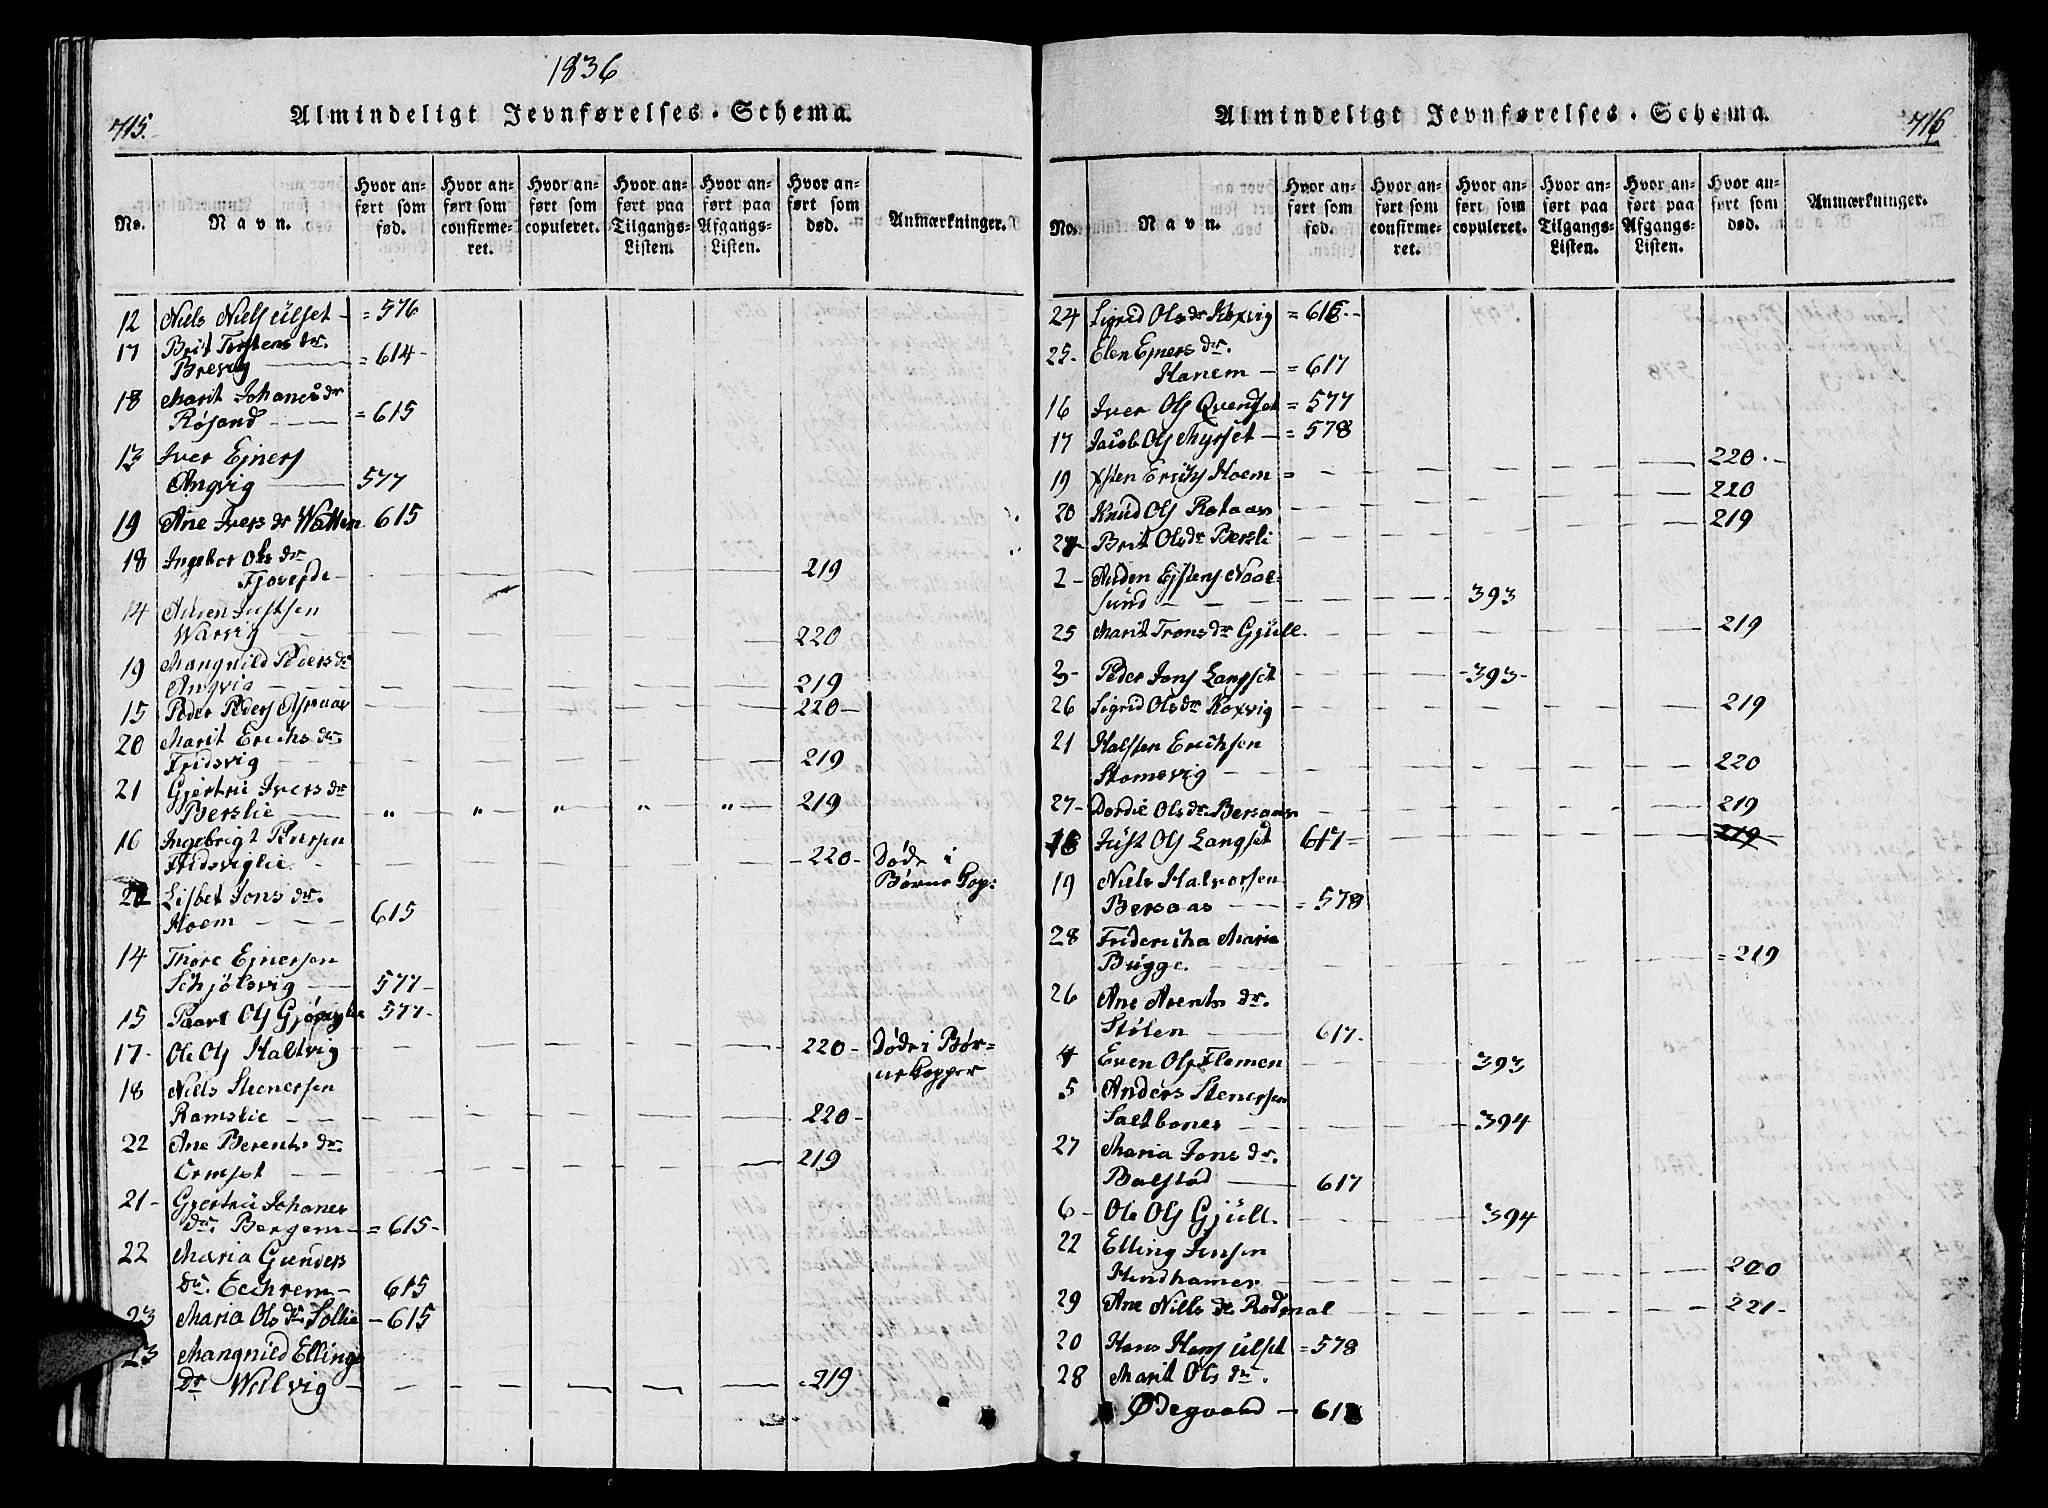 1836
715.
Almindeligt Jevnførelses-Schema.
No.
Navn.
Hvor anført som fød.
Hvor anført som confirmeret.
Hvor anført som copuleret.
Hvor anført paa Tilgangs-Listen.
Hvor anført paa Afgangs-Listen.
Hvor anført som død.
Anmærkninger.
12 Niels Niels Ulset - = 576
17 Brit Torstens dr.
Brevig = 614 -
18 Marit Johanes dr
Røsand = 615
13 Iver Ejners
Angvig 577
19 Ane Ivers dr Watten 615
18 Ingebor Ols dr
219
14
Warvig 220
19 Mangnild Peders dr
Angvig 219
15 Peder Peders 220 -
20 Marit Erichs dr
Fridsvig 219
21 Gjertru Ivers dr
Berslie „ „ „ „ „ 219
16 Ingebrigt
Fridsviglie. - 220 - Døde i
Børne Kop:
22 Lisbet Jons dr.
Hoem 615
14 Thore Ejnersen
Schjølsvig 577 -
15 577 -
17 - Ole Ols Halsvig 220 - Døde i Bør-
nekopper
18 Niels Stenersen
Ramslie 220 -
22 Ane Berents dr.
Ormset 219
21 - Gjertru Johanes
dr. Bergem = 615 -
22 Maria Gunders
dr. Echrem - 615
23 Maria Ols dr Sollie - 615
23 Mangnild Ellings
dr Wulvig - 219
716
Almindeligt Jevnførelses-Schema.
No.
Navn.
Hvor anført som fød.
Hvor anført som confirmeret.
Hvor anført som copuleret.
Hvor anført paa Tilgangs-Listen.
Hvor anført paa Afgangs-Listen.
Hvor anført som død.
Anmærkninger.
24 Sigrid Ols dr Koxvig = 616 -
25 - Elen Ejners dr.
Hanem - = 617
16 Iver Ols Qvenset = 577
17 Jacob Ols Myrset - = 578
19 Erichs Hoem = 220 -
20 Knud Ols Rotaas 220
24 Brit Ols dr Bersli 219
2 -
sund 393
25 Marit Trons dr Gjüll. 219
3 - Peder Jons Langset - 393 -
26 Sigrid Ols dr Koxvig 219
21 Halsten Erichsen
Stomsvig 220
27 - Dordie Ols dr Bersaas 219
18 Just Ols Langset 617 = 219
19 Niels Halvorsen
Bersaas = 578
28 Fridericha Maria
Bügge. = 219
26 Ane Arents dr.
Stølen 617 -
4 Even Ols Flemen 393
5 Anders Stenersen
Saltbones 394
27 Maria Jons dr.
617
6 - Ole Ols Gjüll. 394
22 Elling Jensen
Hindhamer 220
29 Ane Niels dr Rødmal 221 -
20 Hans Hans Ulset = 578
28 Marit Ols dr.
Ødegaard - 618